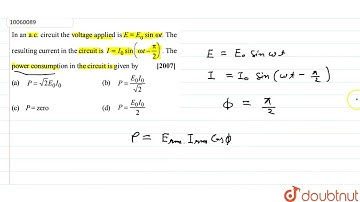 10060089
In an a.c. circuit the voltage applied is E = E₀ sin ωt. The
resulting current in the circuit is I = I₀ sin(ωt − π/2). The
power consumption in the circuit is given by [2007]
(a) P = √2E₀I₀ (b) P = E₀I₀/√2
(c) P = zero (d) P = E₀I₀/2
E = E₀ sin ωt
I = I₀ sin (ωt − π/2)
ϕ = π/2
P = Erms. Irms Cosϕ
doubtnut